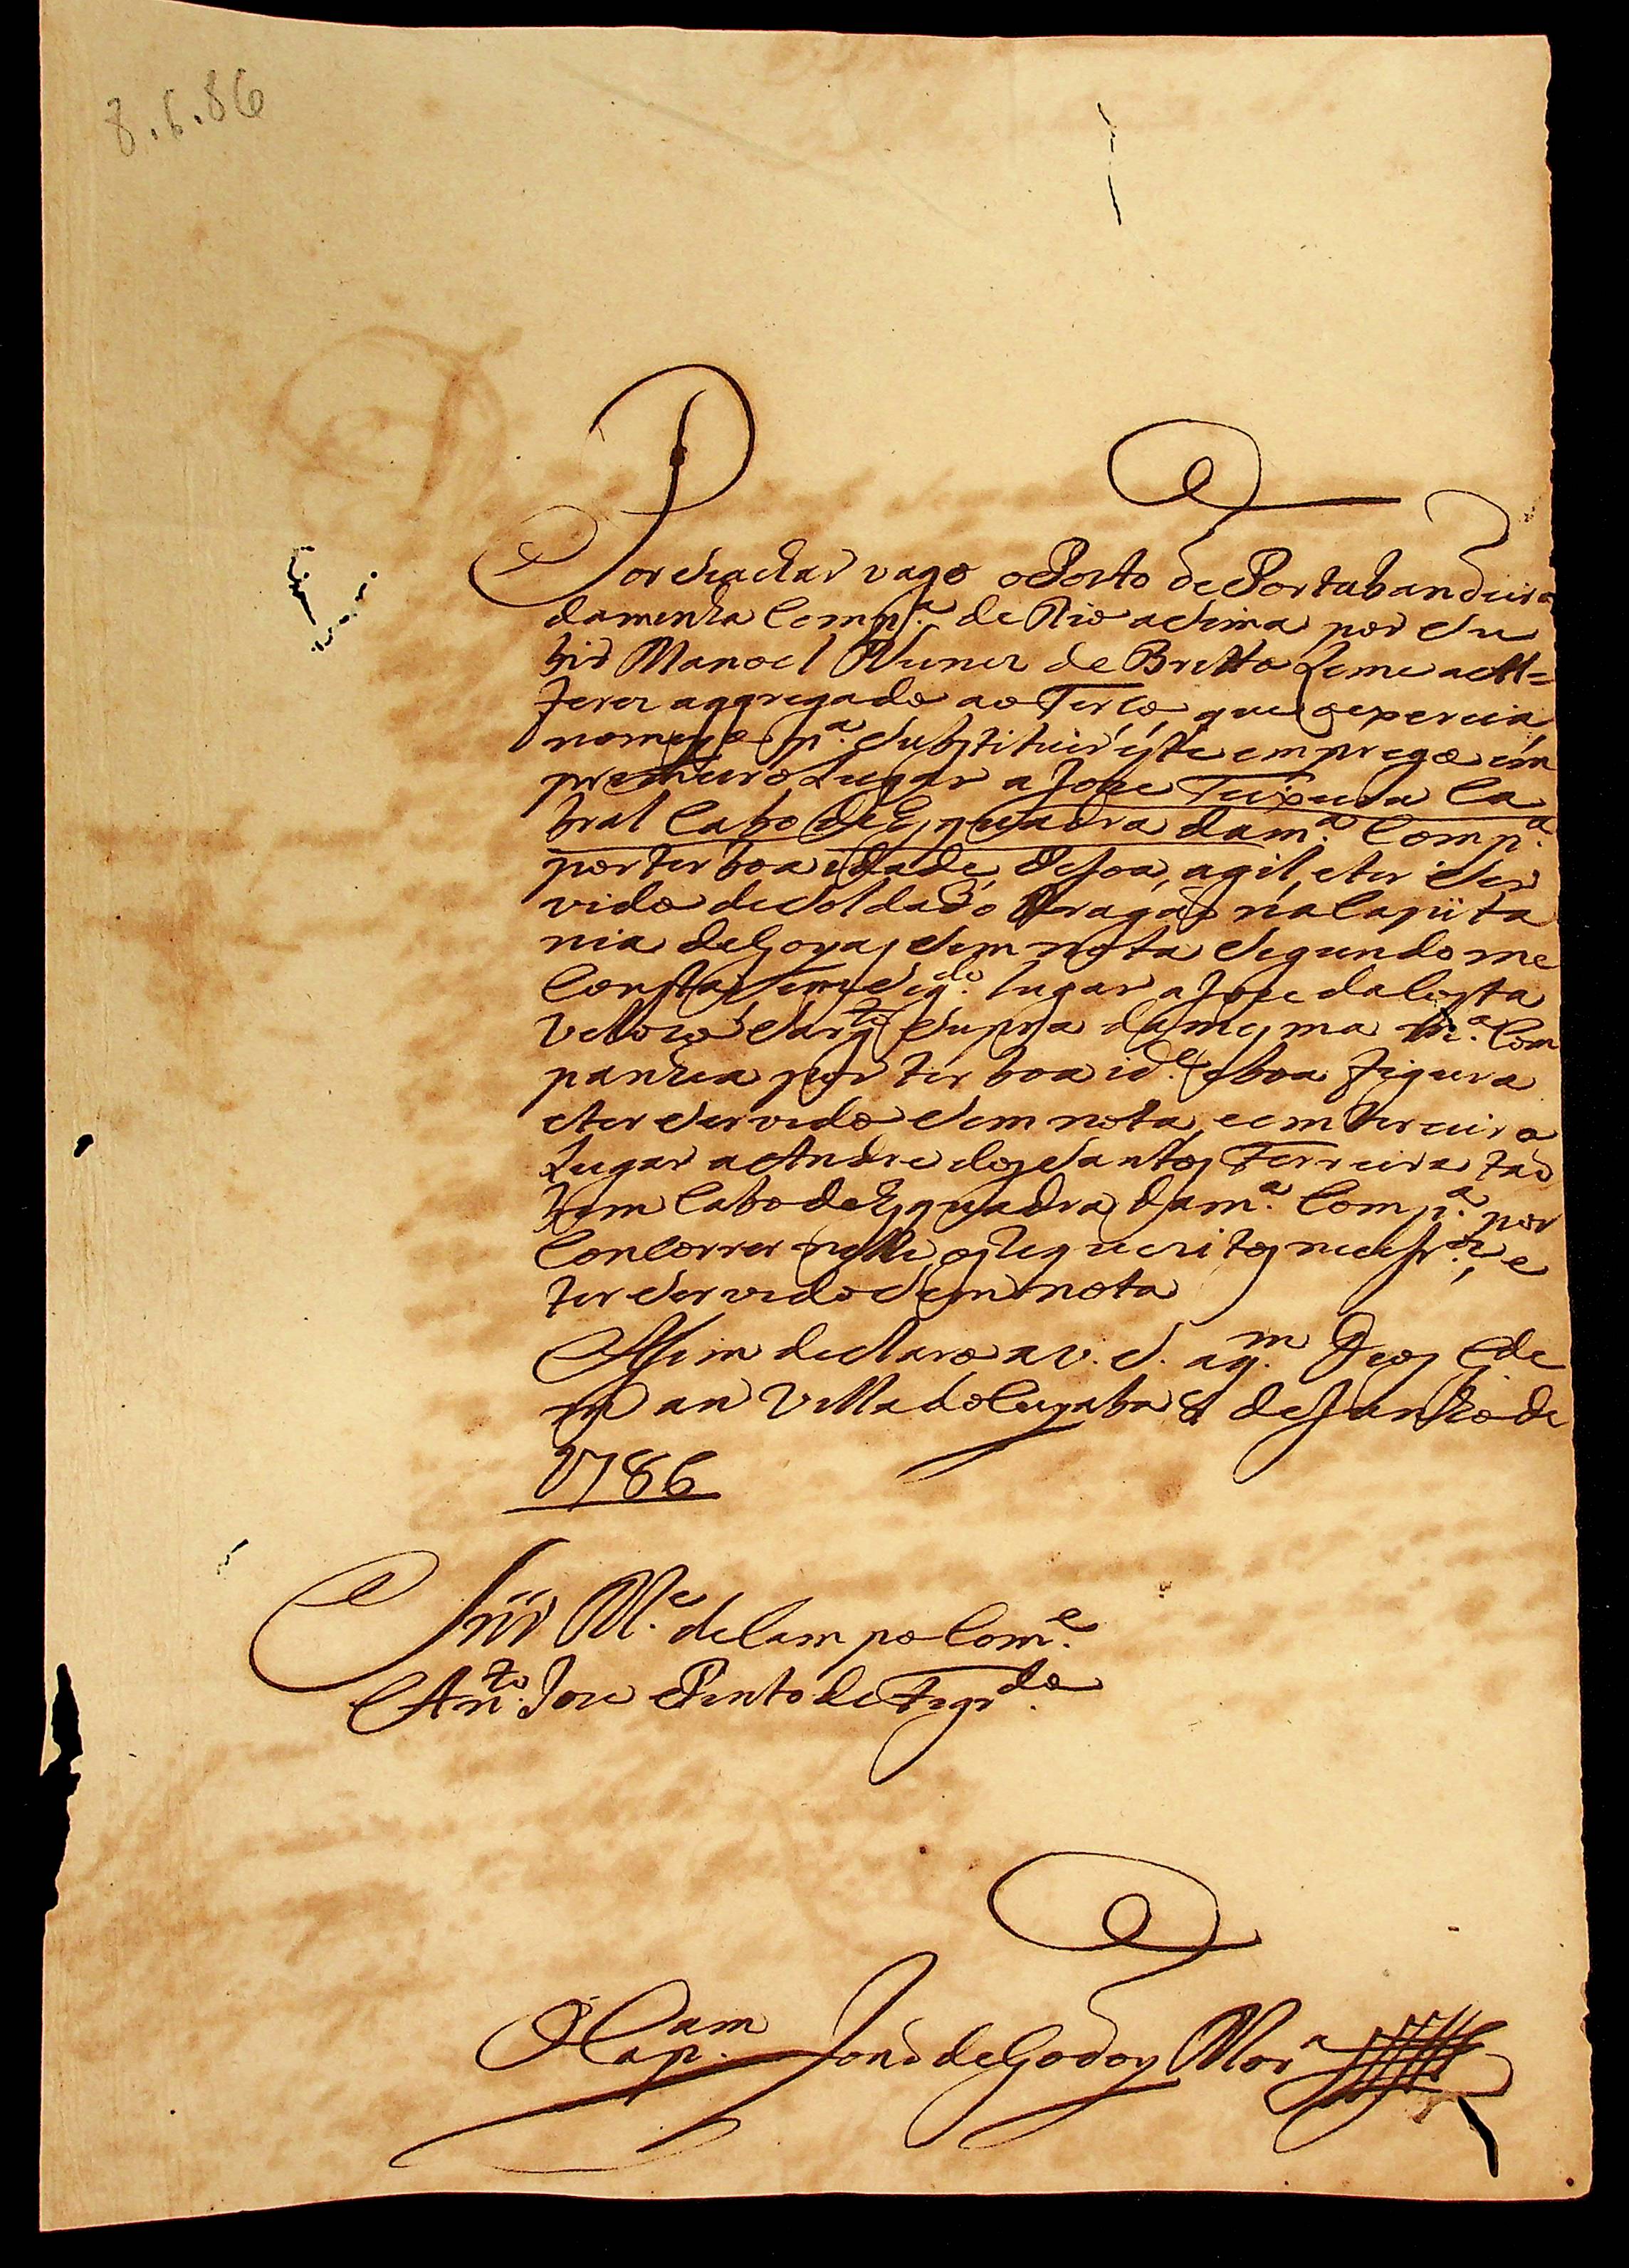 8.6.86
Por se achar vago o Posto de Portabandeira
da minha Comp.ª de Rio asima por su
bir Manoel Nunez de Britto Leme a Al=
ferez aggregado ao Terço, que o exercia,
nomeyo p.ª substituir este emprego em
primeiro Lugar a Joze Teixeira Ca
bral Cabo de Esquadra da m.ª Comp.ª
por ter boa idade, pesoa, agil, e ter ser
vido de Soldado Dragaõ na Capita
nia de Goyas sem nota segundo me
Consta, em seg.do lugar a Joze da Costa
Vellozo Sarg.to Supra da mesma m.ª Com
panhia por ter boa id.e e boa figura
e ter servido sem nota, e em terceiro
Lugar a Andre dos Santos Ferreira tao
bem Cabo de Esquadra da m.ª Comp.ª por
Concorrer nelle os requezitos necesr.os, e
ter servido sem nota
Assim declaro a V. S. a q.m Deos G.de
m an Villa do Cuyaba 8 de Junho de
1786
Snr M.e de Campo Com.e
An.to Joze Pinto de Figr.do
O Cap.am Joaõ de Godoy Mor.ª